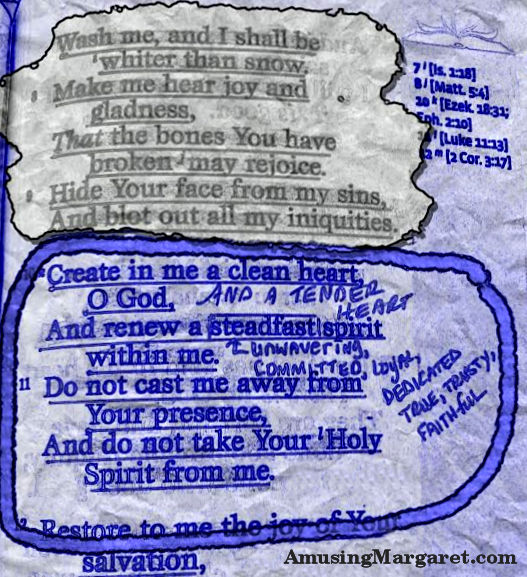 Wash me, and I shall be
whiter than snow.
8 Make me hear joy and
gladness,
That the bones You have
broken may rejoice.
9 Hide Your face from my sins,
And blot out all my iniquities.
Create in me a clean heart,
O God, AND A TENDER
HEART
And renew a steadfast spirit
within me. UNWAVERING,
COMMITTED, LOYAL,
DEDICATED
TRUE, TRUSTY,
FAITHFUL
11 Do not cast me away from
Your presence,
And do not take Your Holy
Spirit from me.
12 Restore to me the joy of Your
salvation,
7 l [Is. 1:18]
8 l [Matt. 5:4]
10 k [Ezek. 18:31;
Eph. 2:10]
[Luke 11:13]
12 m [2 Cor. 3:17]
AmusingMargaret.com